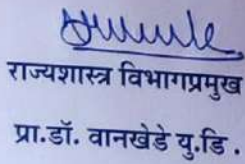 राज्यशास्त्र विभागप्रमुख
प्रा.डॉ. वानखेडे यु.डि .